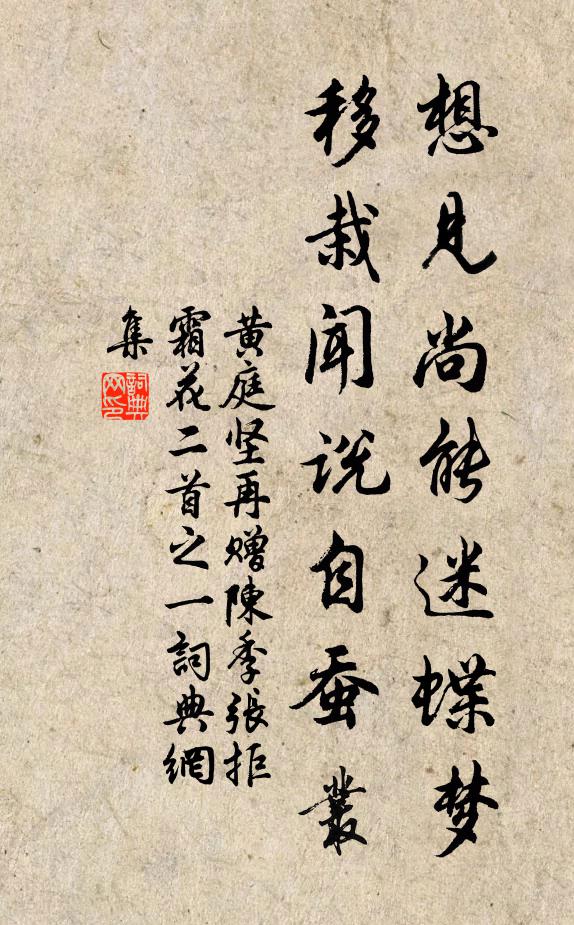 想见尚能迷蝶梦
移栽闻说自蚕丛
黄庭坚再赠陳季張拒
霜花二首之一詞典網
集
詞典
网印